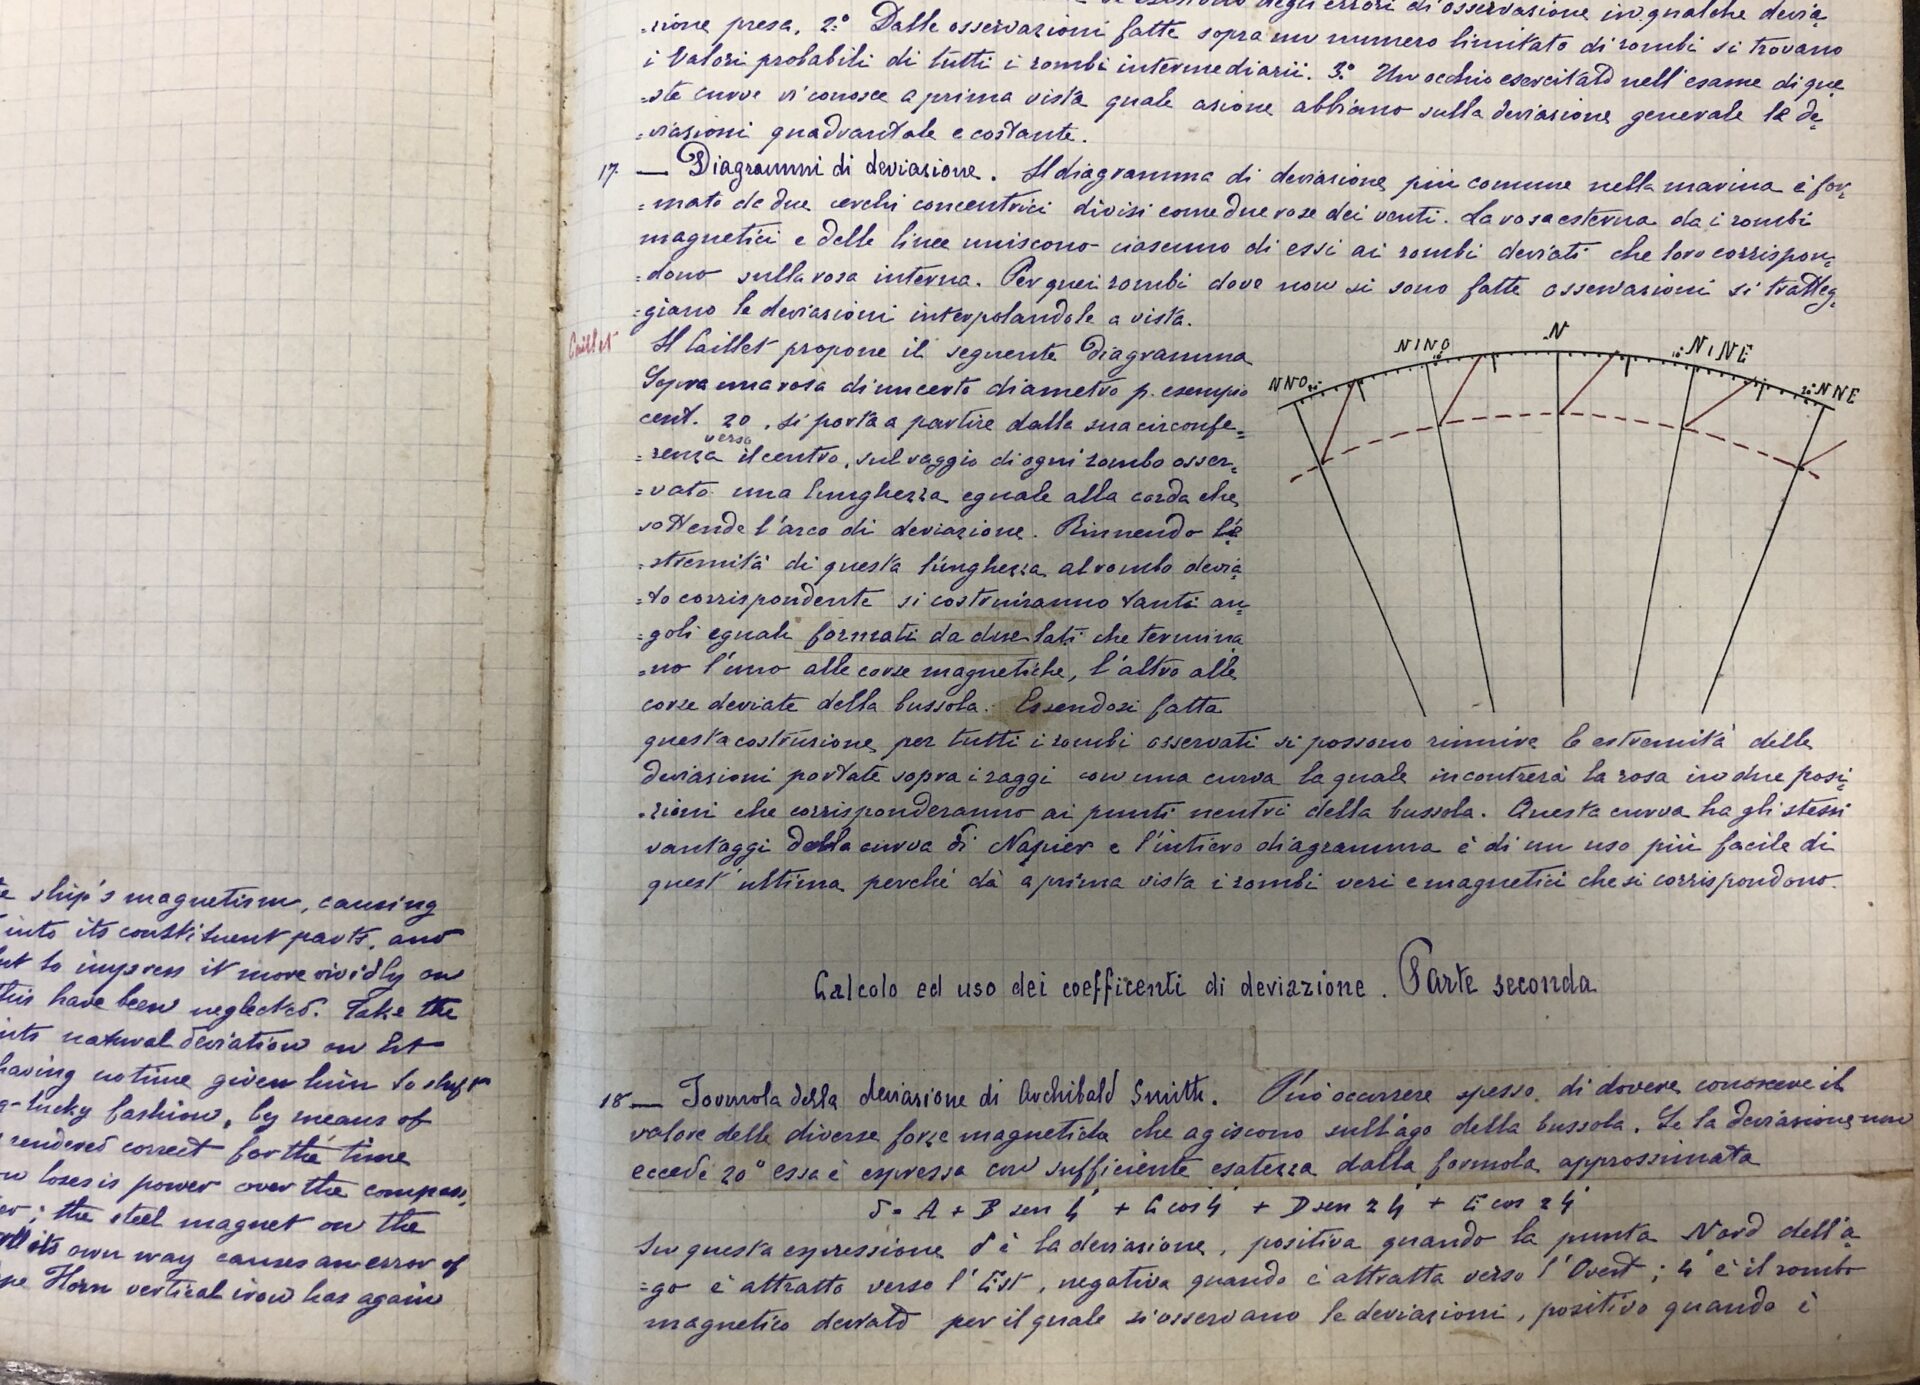 te ship's magnetism, causing
into its constituent parts, and
nt to impress it more vividly on
this have been neglected. Take the
its natural deviation on Est
having no time given him to shift
y-lucky fashion, by means of
rendered correct for the time
w loses is power over the compass,
er; the steel magnet on the
its own way causes an error of
pe Horn vertical iron has again
degli errori di osservazione in qualche devia
=zione presa. 2.° Dalle osservazioni fatte sopra un numero limitato di rombi si trovano
i valori probabili di tutti i rombi intermediarii. 3.° Un occhio esercitato nell'esame di que
=ste curve riconosce a prima vista quale azione abbiano sulla deviazione generale le de
=viazioni quadrantale e costante.
17. — Diagrammi di deviazione. Il diagramma di deviazione più comune nella marina è for,
=mato da due cerchi concentrici divisi come due rose dei venti. La rosa esterna da i rombi
magnetici e delle linee uniscono ciascuno di essi ai rombi deviati che loro corrispon=
=dono sulla rosa interna. Per quei rombi dove non si sono fatte osservazioni si tratteg=
=giano le deviazioni interpolandole a vista.
Caillet
Il Caillet propone il seguente diagramma
Sopra una rosa di un certo diametro p. esempio
cent. 20, si porta a partire dalla sua circonfe=
=renza verso il centro, sul raggio di ogni rombo osser=
=vato una lunghezza eguale alla corda che
sottende l'arco di deviazione. Riunendo l'e
=stremità di questa lunghezza al rombo devia
=to corrispondente si costruiranno tanti an=
=goli eguali formati da due lati che termina
=no l'uno alle corse magnetiche, l'altro alle
corse deviate della bussola. Essendosi fatta
questa costruzione per tutti i rombi osservati si possono riunire le estremità delle
deviazioni portate sopra i raggi con una curva la quale incontrerà la rosa in due posi=
=zioni che corrisponderanno ai punti neutri della bussola. Questa curva ha gli stessi
vantaggi della curva di Napier e l'intiero diagramma è di un uso più facile di
quest'ultima perché dà a prima vista i rombi veri e magnetici che si corrispondono.
NNO 20°
N¼NO 10°
N
10° N¼NE
20° NNE
Calcolo ed uso dei coefficenti di deviazione. Parte seconda
18 — Formola della deviazione di Archibald Smith. Può occorrere spesso di dovere conoscere il
valore delle diverse forze magnetiche che agiscono sull'ago della bussola. Se la deviazione non
eccede 20° essa è espressa con sufficiente esatezza dalla formola approssimata
δ = A + B sen ζ' + C cos ζ' + D sen 2ζ' + E cos 2ζ'
In questa espressione δ è la deviazione, positiva quando la punta Nord dell'a
=go è attratto verso l'Est, negativa quando è attratta verso l'Ovest; ζ' è il rombo
magnetico deviato per il quale si osservano le deviazioni, positivo quando è